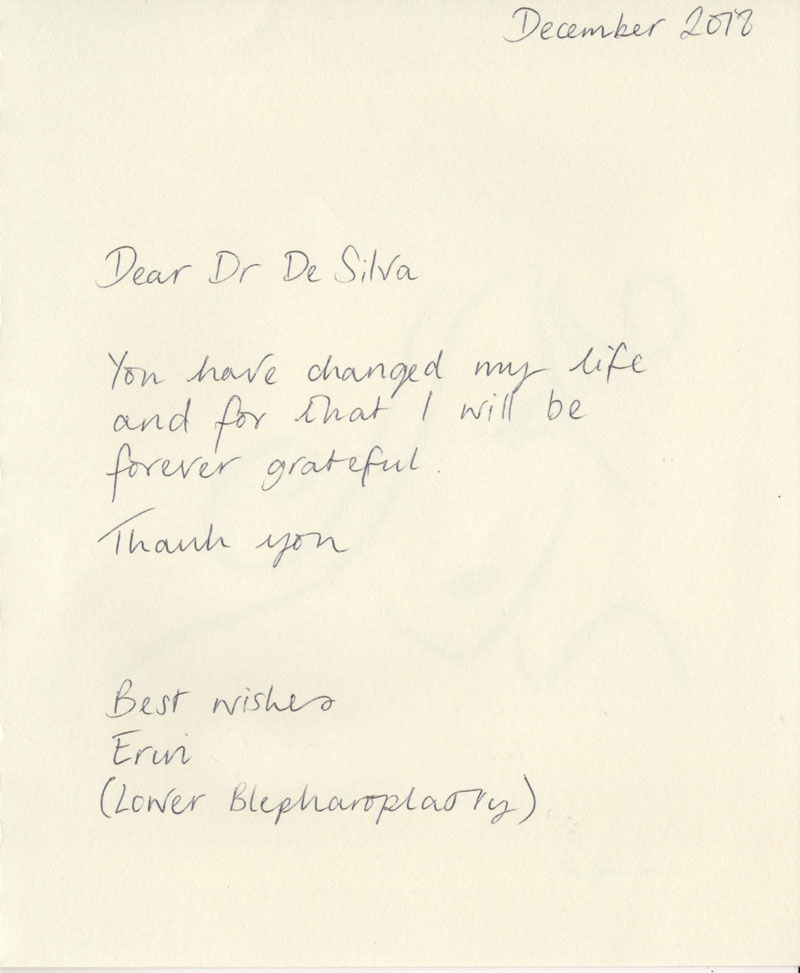 December 2018
Dear Dr De Silva
You have changed my life
and for that I will be
forever grateful.
Thank you
Best wishes
Erin
(Lower Blepharoplasty)